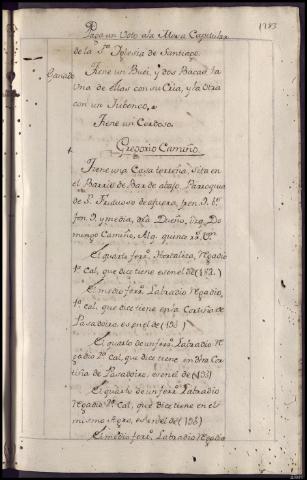 1783
Paga un Voto a la Mesa Capitular
de la Sta Iglesia de Santiago.
Ganado
Tiene un Buei, y dos Bacas, la
una de ellas con su Cria, y la otra
con un Jubenco.
Tiene un Cerdoso.
Gregorio Camiño.
Tiene una Casa terreña, sita en
el Barrio de Bar de abajo, Parroquia
de S. Fructuoso de afuera,
y media, Dueño, Do
mingo Camiño, Alq. quince rs. Vn
El quarto ferdo. Hortaliza, Regadio
1ª Cal, que dice tiene es en el de (182.)
El medio ferdo. Labradio Regadio,
1ª cal, que dice tiene en la Cortiña de
Pasadoiro, es en el de (193)
El quarto de un ferdo. Labradio Re
gadio 2ª Cal, que dice tiene en dha Cor
tiña de Pasadoiro, es en el de (193)
El quarto de un ferdo. Labradio
Regadio 2ª Cal, que dice tiene en el
mismo Agro, es en el de (193)
El medio ferdo. Labradio Regadio